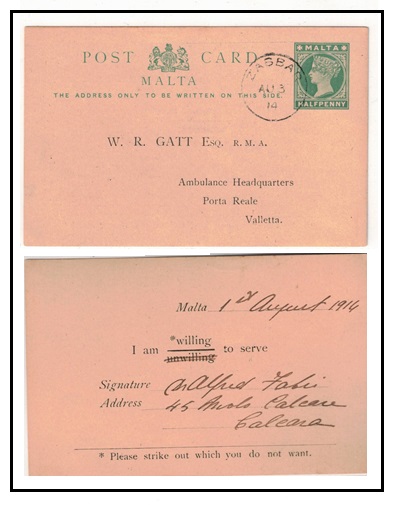 POST CARD
MALTA
THE ADDRESS ONLY TO BE WRITTEN ON THIS SIDE.
ZABBAR
AU 3
14
MALTA
HALFPENNY
W. R. GATT ESQ. R. M. A.
Ambulance Headquarters
Porta Reale
Valletta.
Malta 1st August 1914
*willing
I am to serve
unwilling
Signature Alfred
Address 45 Molo Calcara
Calcara
* Please strike out which you do not want.